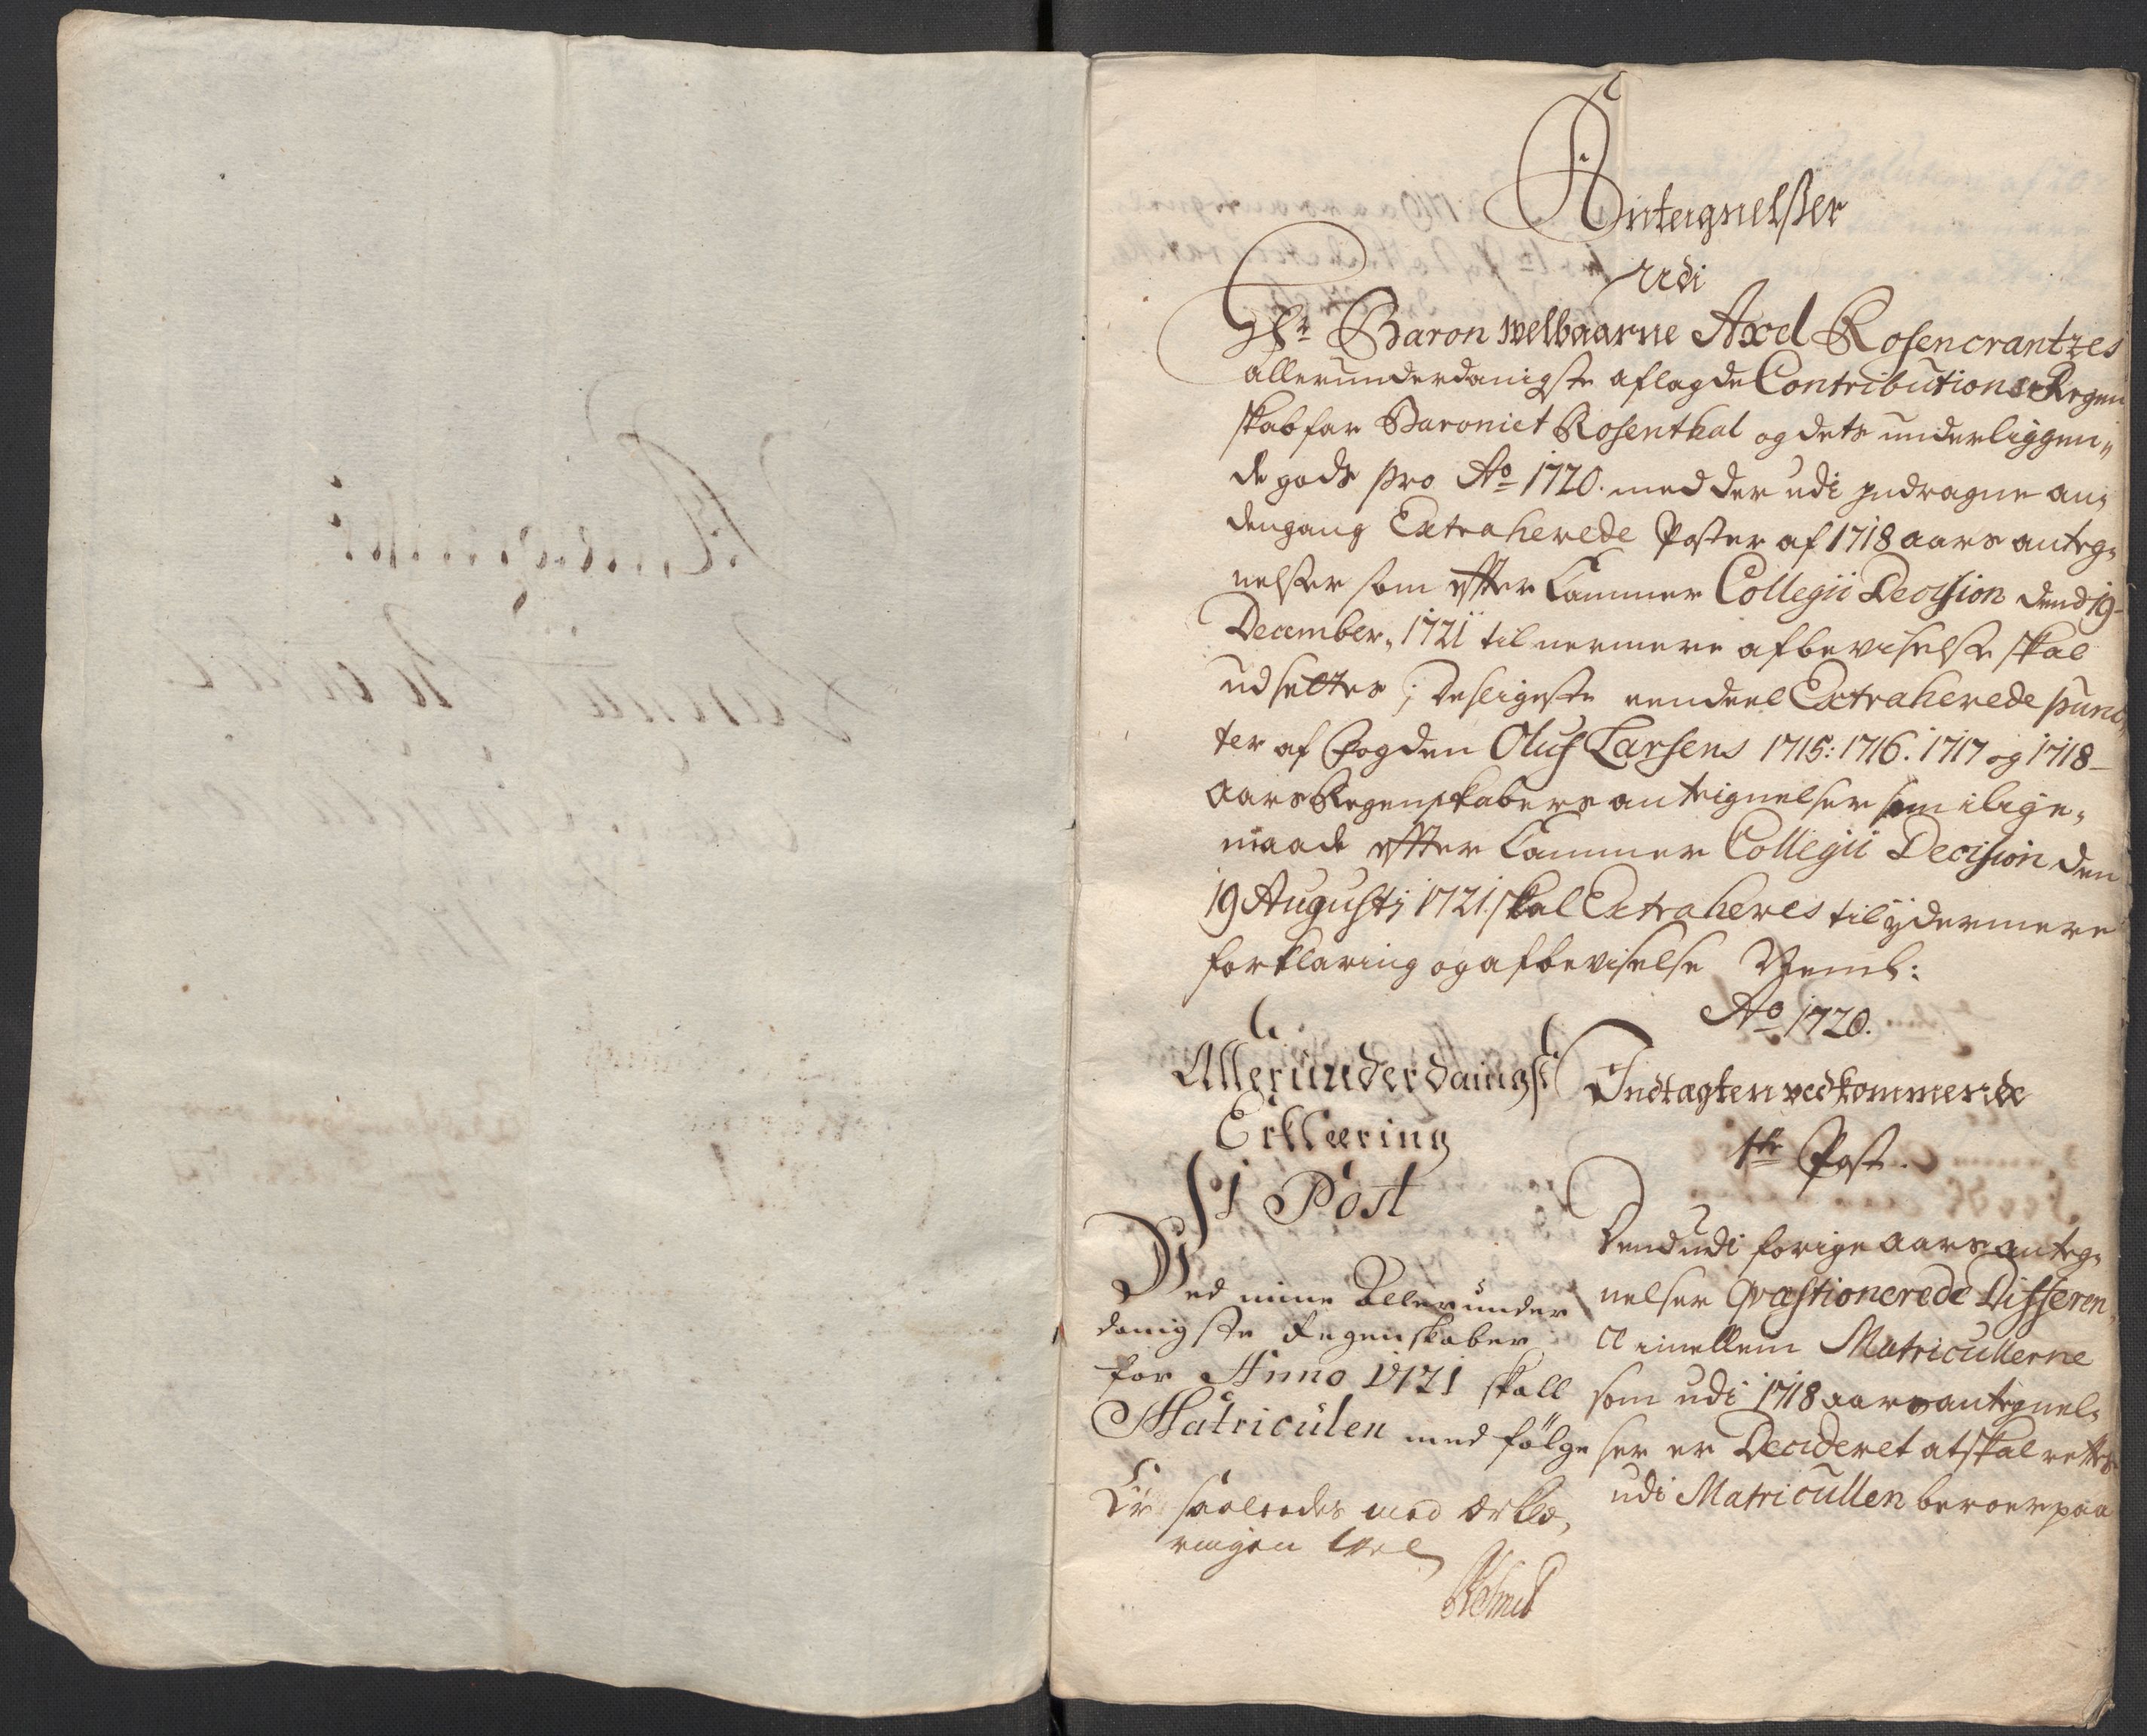 Antegnelsser
udi
Hr. Baron welbaarne Axel Rosencrantzes
allerunderdanigste aflagde Contributions Regen
skab for Baroniet Rosenthal og dets underliggen„
de gods pro Ao 1720. med der udi indragne an„
dengang Extraherede Poster af 1718 aars anteg„
nelsser som effter Cammer Collegii Decission dend 19
December 1721 til nermere afbeviselsse skal
udsettes; desligeste eendeel Extraherede punc„
ter af Fogden Oluf Larsens 1715: 1716. 1717 og 1718
aars Regenskabers anteignelser som i lige„
maade effter Cammer Collegii Decission den
19 Augusti 1721. skal Extraheres til ydermere
forklaring og afbeviselse Neml:
Ao 1720.
Allerunderdanigst
Erklæring
1 Post
Ved mine Allerunder
danigste Regenskaber
for Anno 1721 skall
Matriculen med følge
Er saaledes med Erklæ„
ringen vel
Indtægten vedkommende
1te Post.
Dend udi forige aars anteg„
nelser Qvæstionerede Differen„
ce imellem Matricullerne
som udi 1718 aars antegnel„
ser er Decideret at skal rettes
udi Matricullen beroer paa